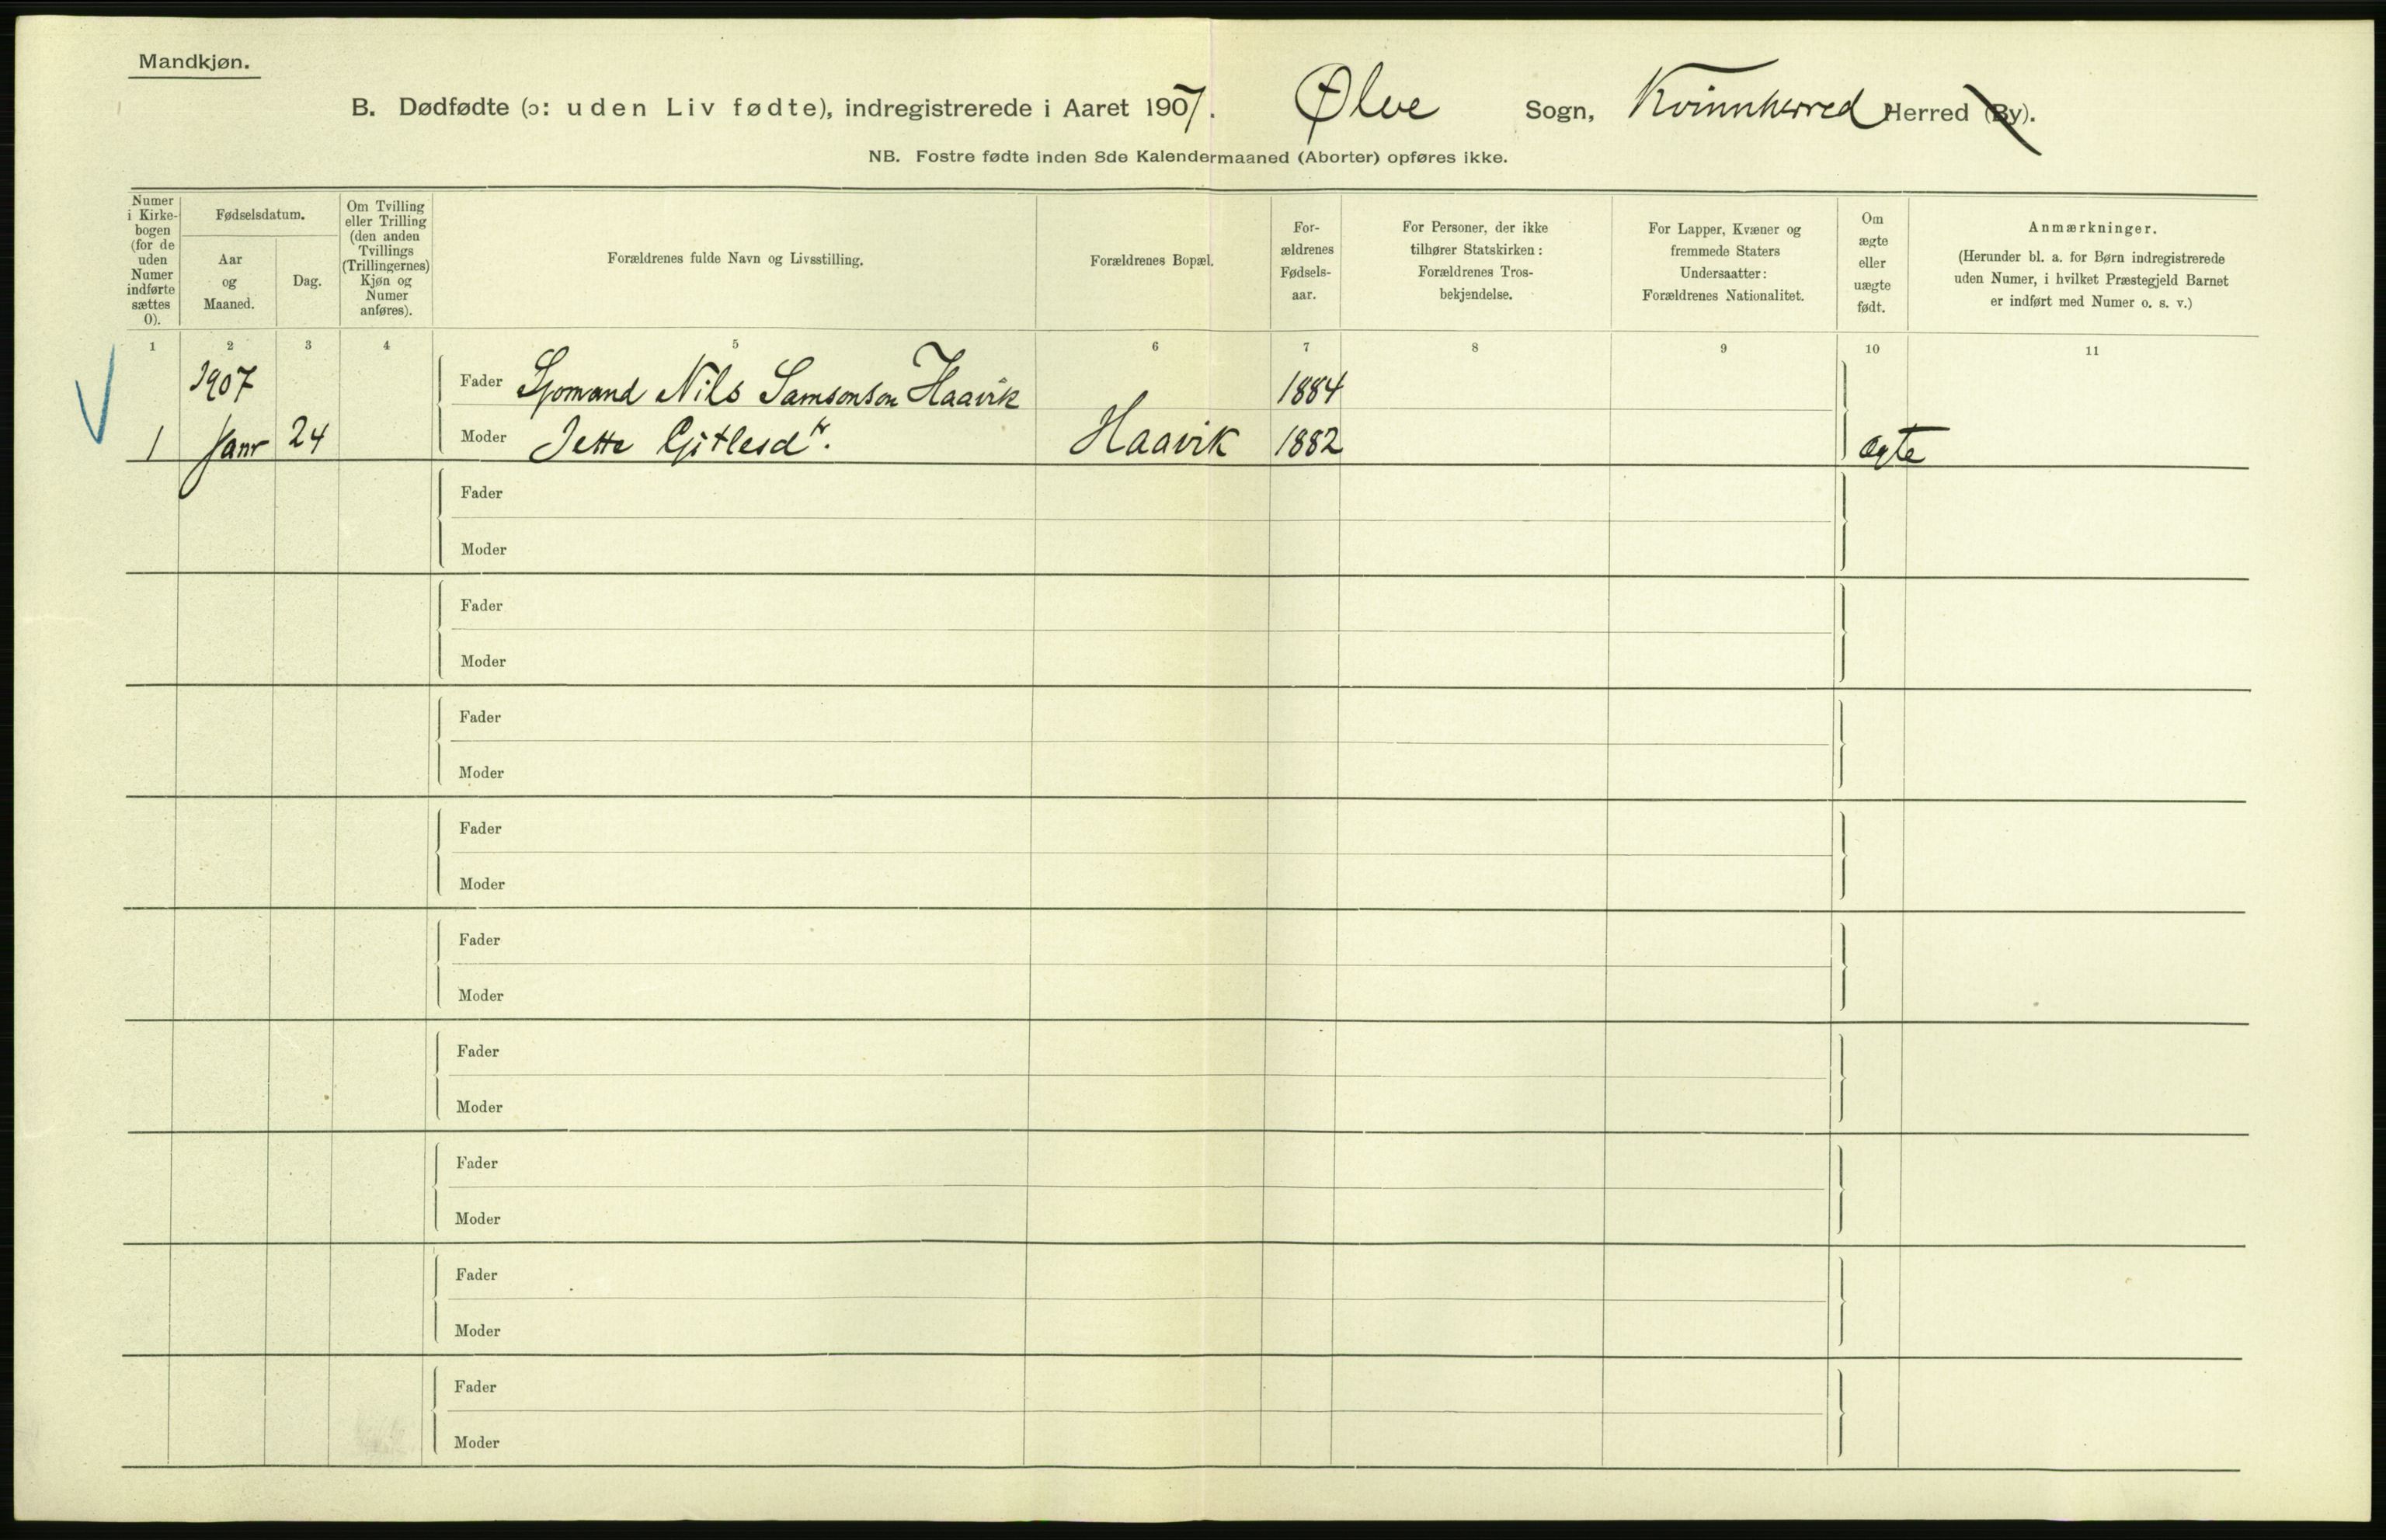 Mandkjøn.
B. Dødfødte (ɔ: uden Liv fødte), indregistrerede i Aaret 1907. Ølve Sogn, Kvinnherred Herred (By).
NB. Fostre fødte inden 8de Kalendermaaned (Aborter) opføres ikke.
Numer
i Kirke-
bogen
(for de
uden
Numer
indførte
sættes
0).
Fødselsdatum.
Aar
og
Maaned.
Dag.
Om Tvilling
eller Trilling
(den anden
Tvillings
(Trillingernes)
Kjøn og
Numer
anføres).
Forældrenes fulde Navn og Livsstilling.
Forældrenes Bopæl.
For-
ældrenes
Fødsels-
aar.
For Personer, der ikke
tilhører Statskirken:
Forældrenes Tros-
bekjendelse.
For Lapper, Kvæner og
fremmede Staters
Undersaatter:
Forældrenes Nationalitet.
Om
ægte
eller
uægte
født.
Anmærkninger.
(Herunder bl. a. for Børn indregistrerede
uden Numer, i hvilket Præstegjeld Barnet
er indført med Numer o. s. v.)
1 2 3 4 5 6 7 8 9 10 11
1907 Fader Sjømand Nils Samsonson Haavik 1884
1 Janr 24 Moder Jette Gitlesdtr. Haavik 1882 ægte
Fader
Moder
Fader
Moder
Fader
Moder
Fader
Moder
Fader
Moder
Fader
Moder
Fader
Moder
Fader
Moder
Fader
Moder